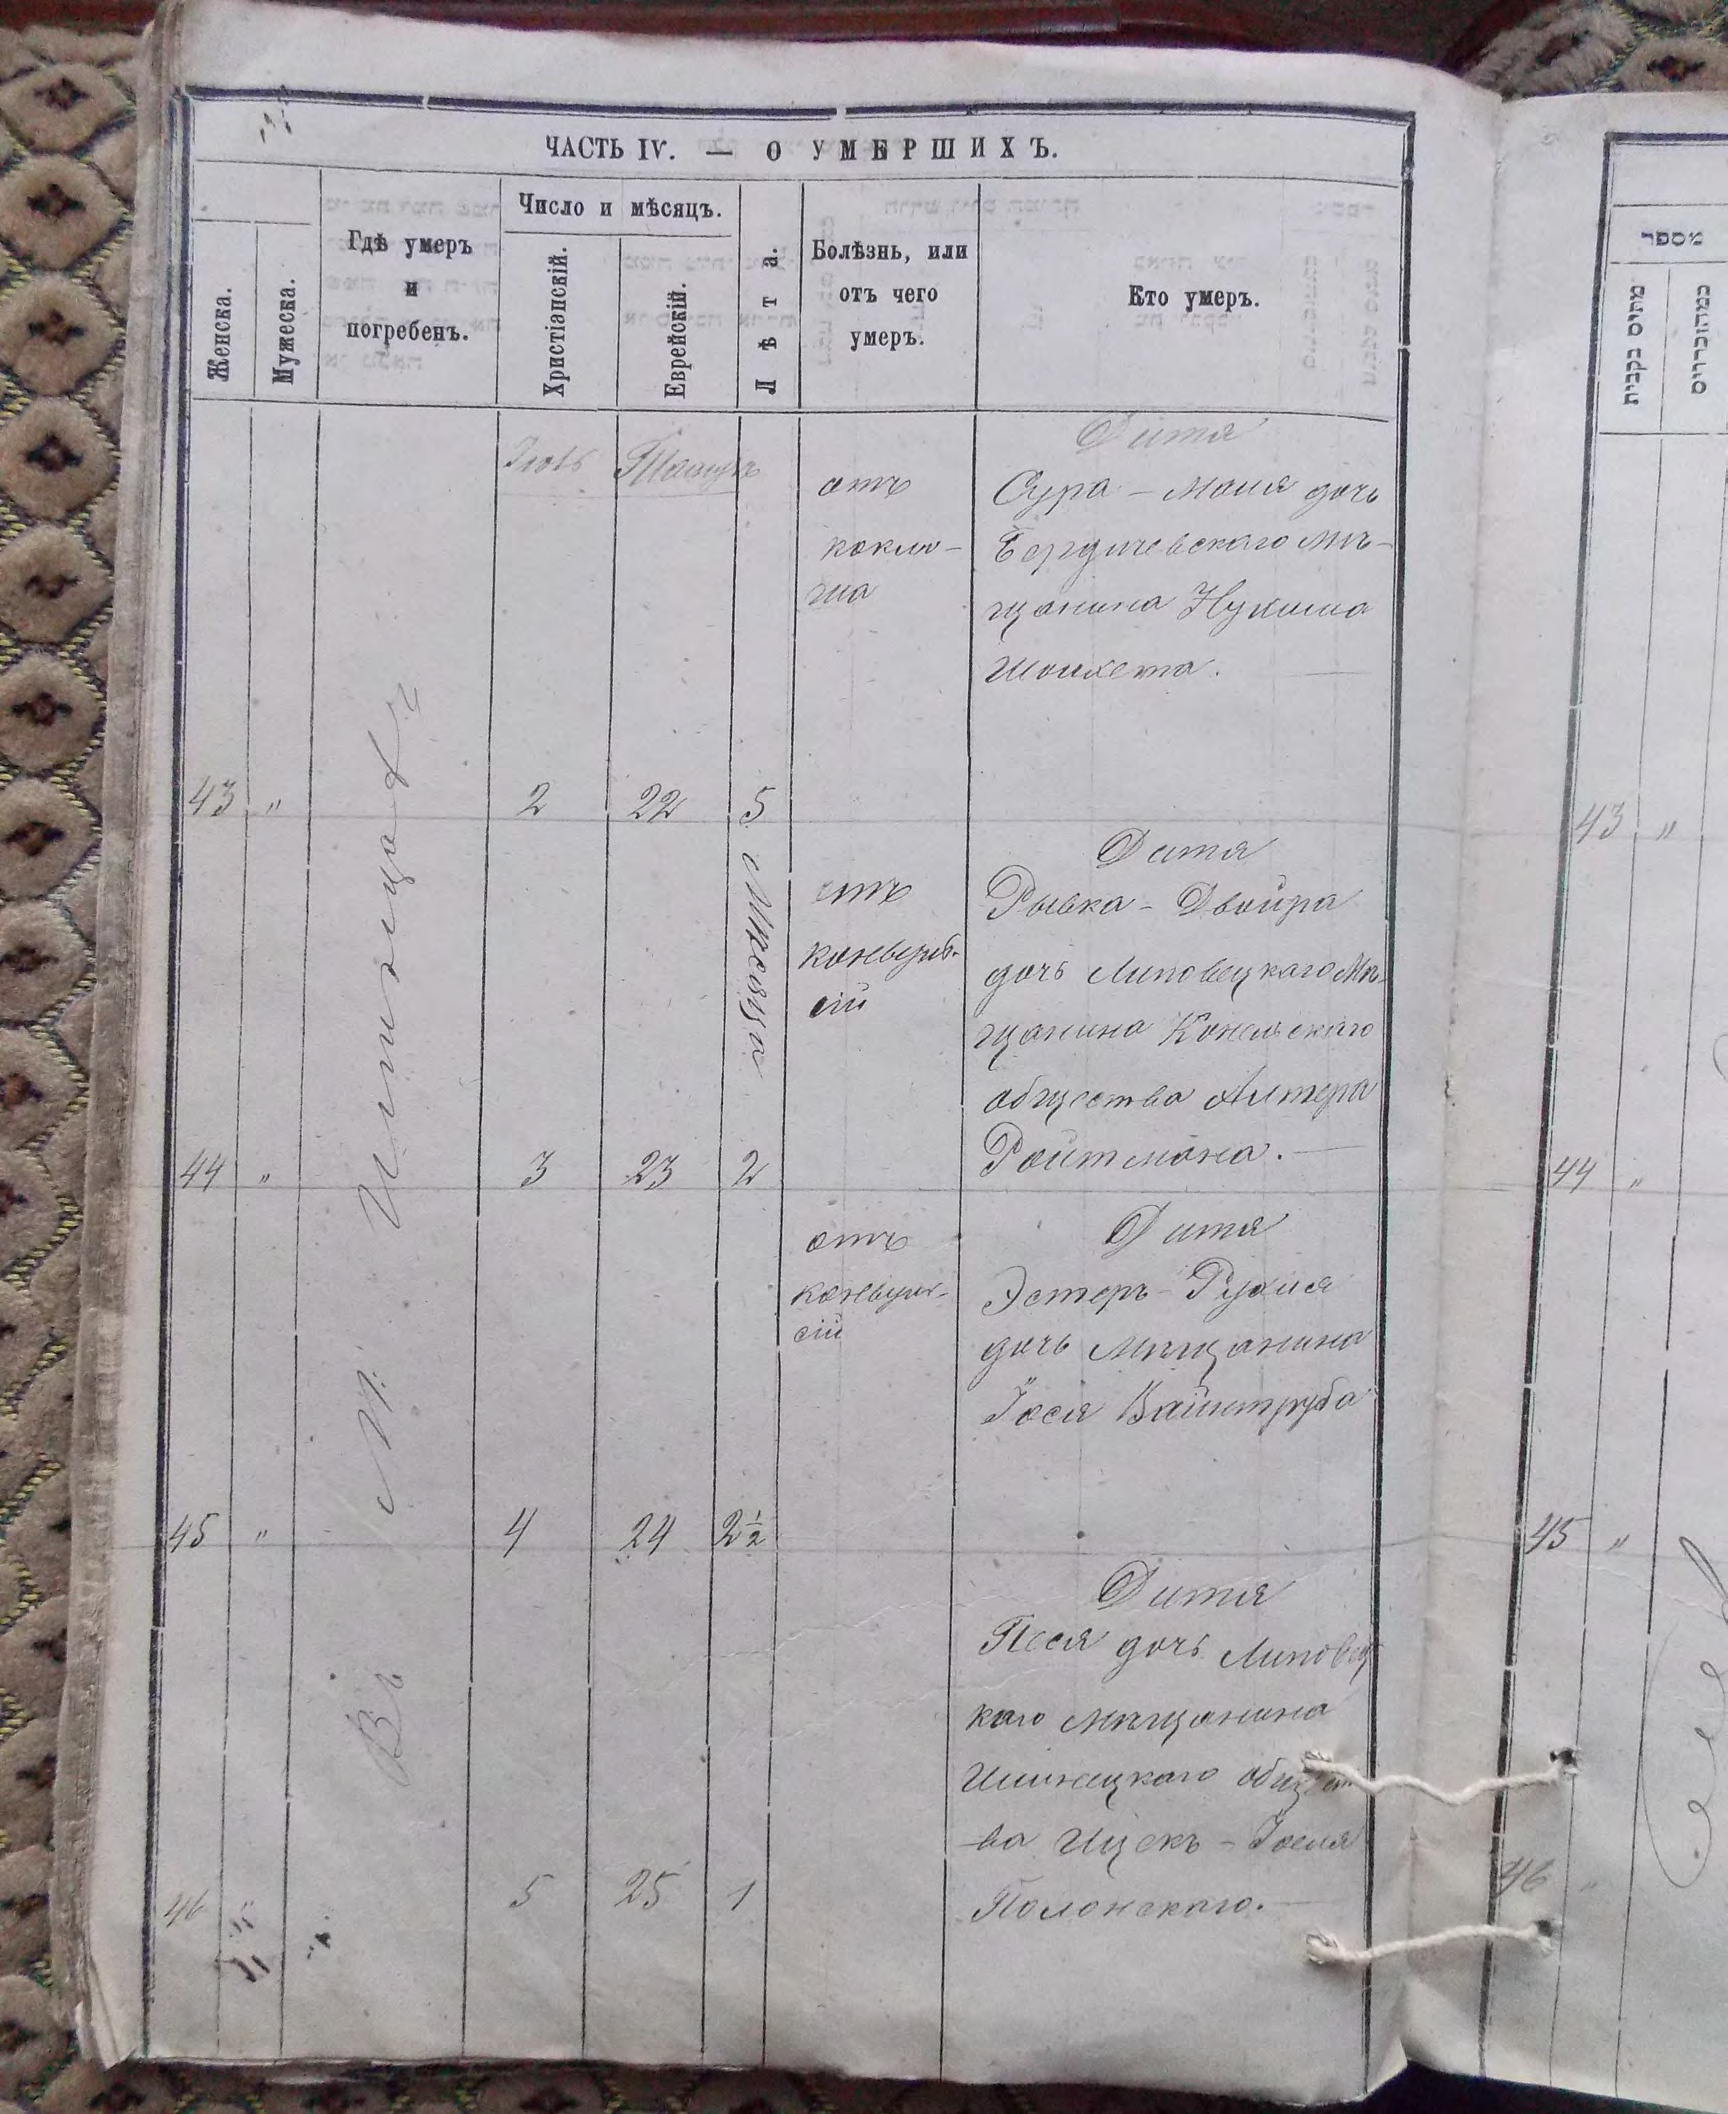 ЧАСТЬ IV. — О УМЕРШИХЪ.
Женска.
Мужеска.
Гдѣ умеръ
и
погребенъ.
Число и мѣсяцъ.
Христіанскій.
Еврейскій.
Лѣта.
Болѣзнь, или
отъ чего
умеръ.
Кто умеръ.
Въ М.
Мѣсяца
Дитя
отъ
коклю-
ша
Сура - Маля дочь
Бердичевскаго мѣ-
щанина Нухима
Шойхета.
43 " 2 22 5
Дитя
отъ
конвуль-
сій
Рывка - Двойра
дочь Липовецкаго Мѣ-
щанина Конельскаго
общества Алтера
Ройтмана.
44 " 3 23 2
Дитя
отъ
конвуль-
сій
Эстеръ - Рухля
дочь Мѣщанина
Іося Вайнтруба
45 " 4 24 2½
Дитя
Песя дочь Липовец
каго мѣщанина
Илинецкаго общест
ва Ицекъ - Іоеля
Полонскаго.
46 " 5 25 1
מספר
מתים נקבית
מהזכרים
43 "
44 "
45 "
46 "